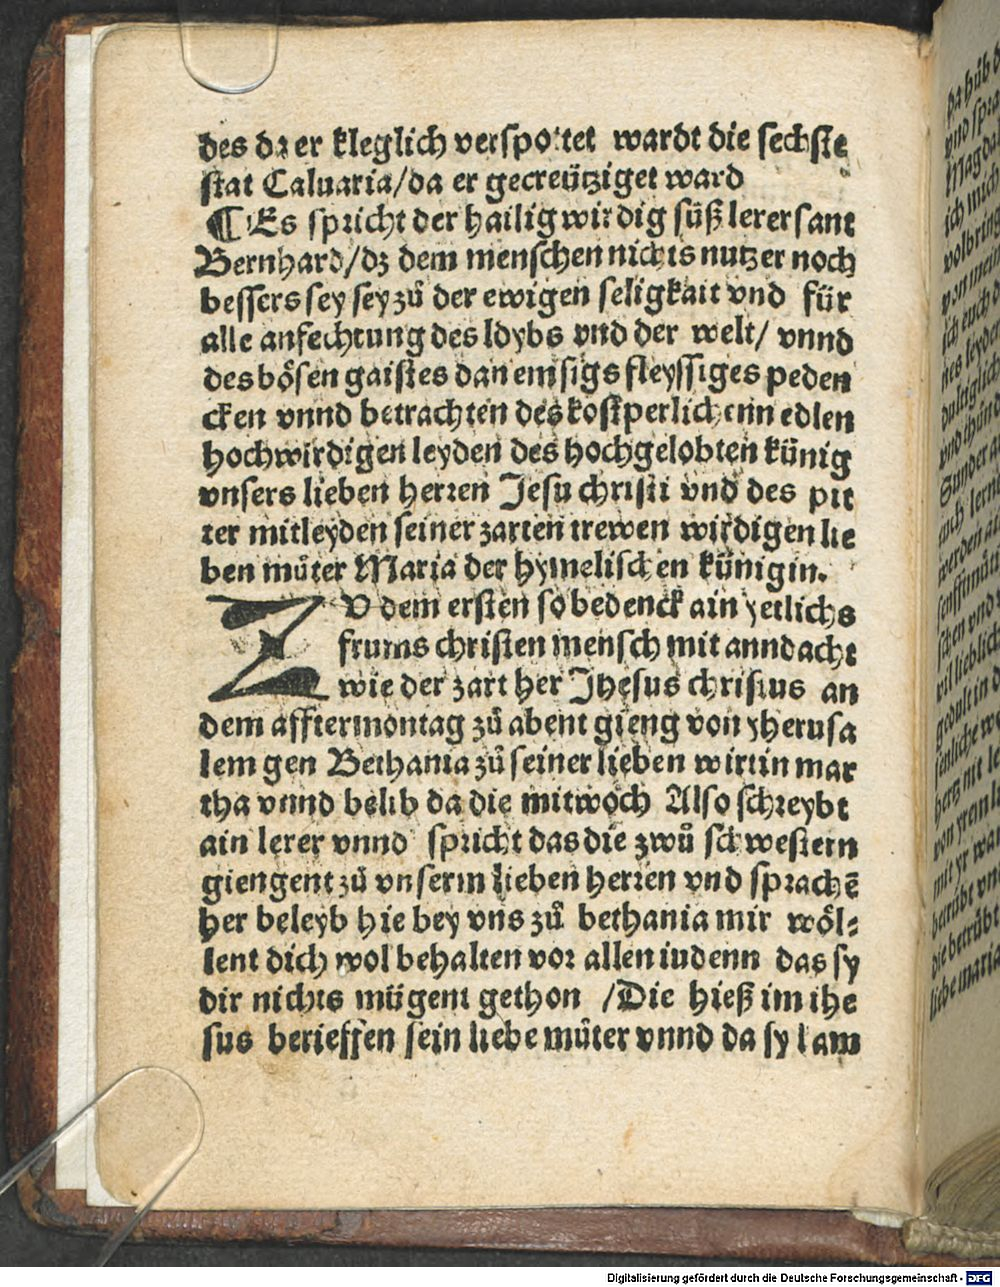 des da er kleglich verspottet wardt die sechste
stat Caluaria/da er gecreütziget ward
¶ Es spricht der hailig wirdig süß lerer sant
Bernhard/dz dem menschen nichts nutzer noch
bessers sey sey zů der ewigen seligkait vnd für
alle anfechtung des ldybs vnd der welt/ vnnd
des bösen gaistes dan emsigs fleyssiges peden
cken vnnd betrachten des kostperlichenn edlen
hochwirdigen leyden des hochgelobten künig
vnsers lieben herren Jesu christi vnd des pit
ter mitleyden seiner zarten trewen wirdigen lie
ben můter Maria der hymelischen künigin.
ZV dem ersten so bedenck ain yetlichs
frums christen mensch mit anndacht
wie der zart her Jhesus christus an
dem afftermontag zů abent gieng von yherusa
lem gen Bethania zů seiner lieben wirtin mar
tha vnnd belib da die mitwoch Also schreybt
ain lerer vnnd spricht das die zwů schwestern
giengent zů vnserm lieben herren vnd sprachē
her beleyb hie bey vns zů bethania mir wöl⸗
lent dich wol behalten vor allen iudenn das sy
dir nichts mügent gethon /Die hieß im ihe
sus berieffen sein liebe můter vnnd da sy kam
da hůb
vnd spra
Magda
ich mich
volbring
von mein
ich euch d
nes leyde
vnd thůn
Sunder a
euch lern
werden a
senfftmůti
schen vnd
vil lieblich
gedult in d
senliche w
hertz mit le
von yrem
mit yr wa
betrübt vn
die betrübt
liebe maria
Digitalisierung gefördert durch die Deutsche Forschungsgemeinschaft - DFG